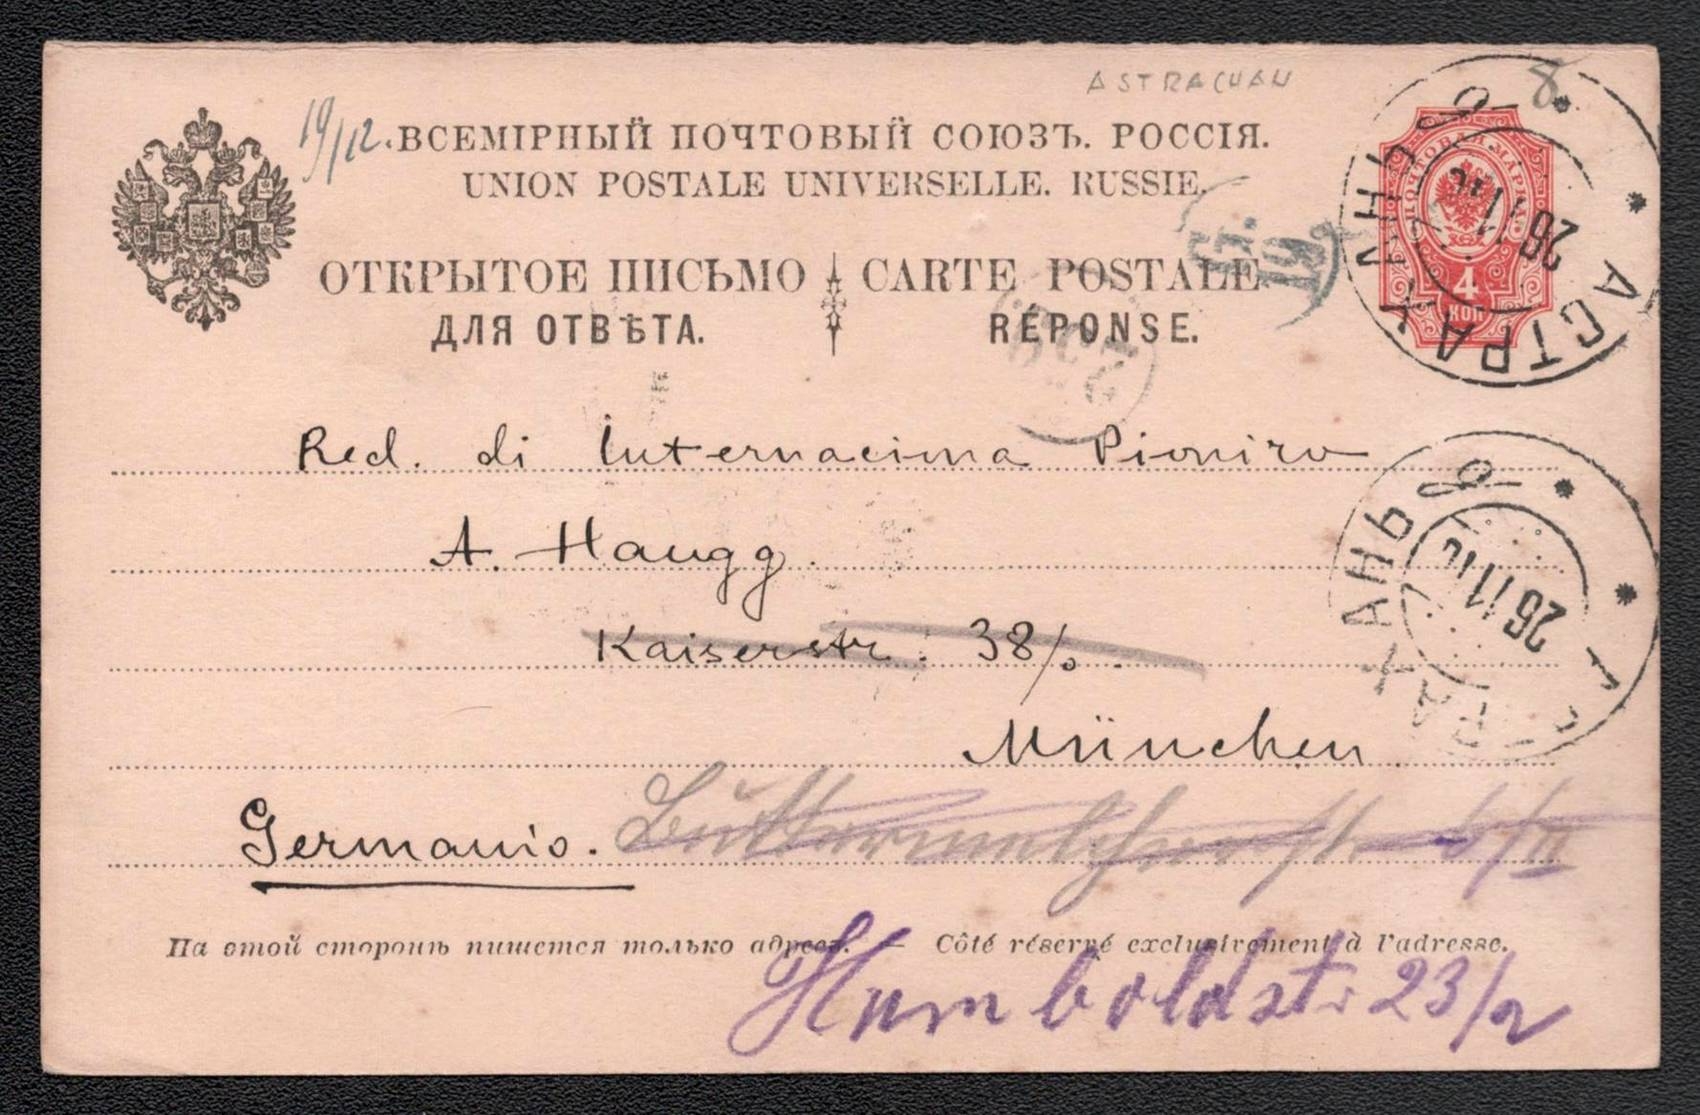 ASTRACHAN
8
19/12.
ВСЕМІРНЫЙ ПОЧТОВЫЙ СОЮЗЪ. РОССІЯ.
UNION POSTALE UNIVERSELLE. RUSSIE.
ПОЧТОВАЯ МАРКА
4
КОП
АСТРАХАНЬ
26 11
ОТКРЫТОЕ ПИСЬМО
ДЛЯ ОТВѢТА.
CARTE POSTALE
RÉPONSE.
19
Red. di Internaciona Pioniro
A. Haugg.
Kaiserstr. 38/0.
München
Germanio.
АСТРАХАНЬ
26 11
Buttermelcherstr. 5/II
На этой сторонѣ пишется только адресъ. — Côté réservé exclusivement à l'adresse.
Humboldstr 23/2